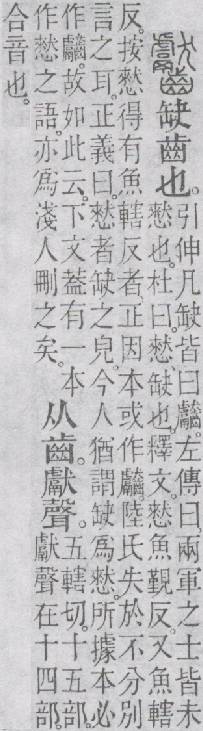 齾缺齒也。引伸凡缺皆曰齾。左傳曰。兩軍之士皆未
憖也。杜曰。憖、缺也。釋文。憖魚覲反。又魚轄
反。按憖得有魚轄反者、正因本或作齾。陸氏失於不分別
言之耳。正義曰。憖者缺之皃。今人猶謂缺爲憖。所據本必
作齾。故如此云。下文葢有一本
作憖之語。亦爲淺人刪之矣。
从齒。獻聲。
五轄切。十五部。
獻聲在十四部。
合音也。